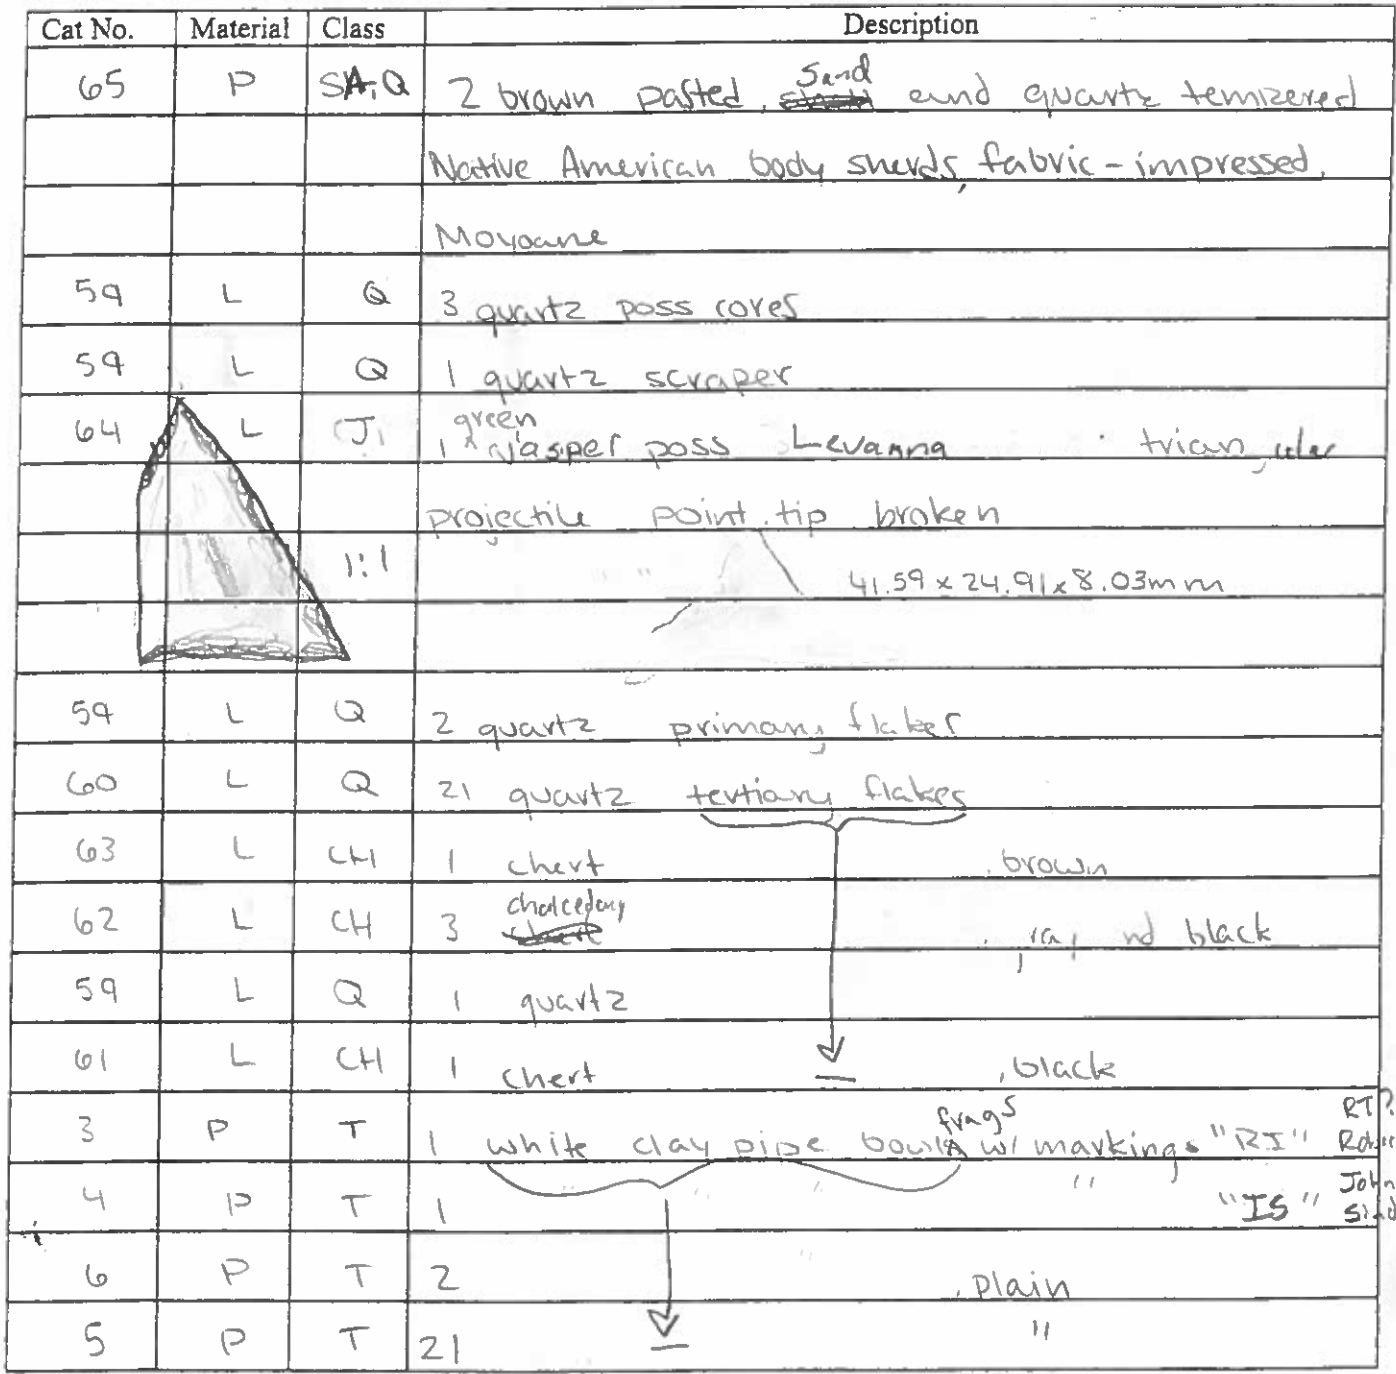 Cat No. Material Class Description
65 P SA, Q 2 brown pasted, sand and quartz tempered
Native American body sherds, fabric-impressed,
Moyoane
59 L Q 3 quartz poss cores
59 L Q 1 quartz scraper
64 L J 1 green jasper poss Levanna triangular
projectile point, tip broken
1:1 41.59 x 24.91 x 8.03mm
59 L Q 2 quartz primary flakes
60 L Q 21 quartz tertiary flakes
63 L CH 1 chert , brown
62 L CH 3 chalcedony , black
59 L Q 1 quartz
61 L CH 1 chert — , black
3 P T 1 white clay pipe bowl frags w/ markings "RI" RT?
4 P T 1 " "IS" John
6 P T 2 , plain
5 P T 21 — "